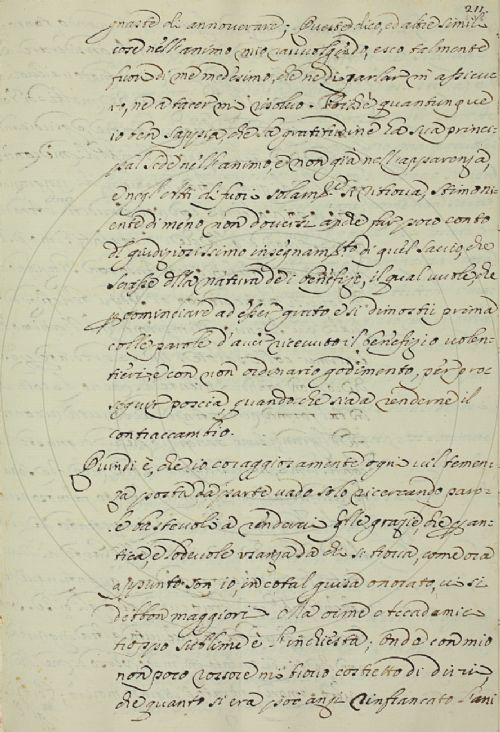 211
gnaste di annoverare; Queste dico, ed altre simili
cose nell'animo mio ravvolgendo, esco talmente
fuor di me medesimo, che ne di parlar m'assicu-
ro, ne a tacer mi risolvo. Perchè quantunque
io ben sappia, che la gratitudine ha sua princi-
pal sede nell'animo, e non già nell'apparenza,
e negl'atti di fuori solam.te si ritrova,
di meno non doversi far poco conto
del giudiziosissimo insegnam.to di quel Saccio, che
scrisse della natura de i benefizj, il qual vuole, che
cominciare ad esser grato e si dimostri prima
colle parole d'aver ricevuto il benefizio volen-
tieri, e con non ordinario godimento, per pro-
seguir poscia, quando che sia a renderne il
contraccambio.
Quindi è, che io coraggiosamente ogni vil temen-
za posta da parte vado solo ricercando paro-
le bastevoli a rendervi q.lle grazie, che per an-
tica, e lodevole usanza da chi si trova, come ora
appunto son io, in cotal guisa onorato, vi si
debbon maggiori. Ma oimè Accademici
troppo sublime è l'inchiesta; onde con mio
non poco rossore mi trovo costretto di dirvi,
che quanto si era poc'anzi rinfrancato l'ani